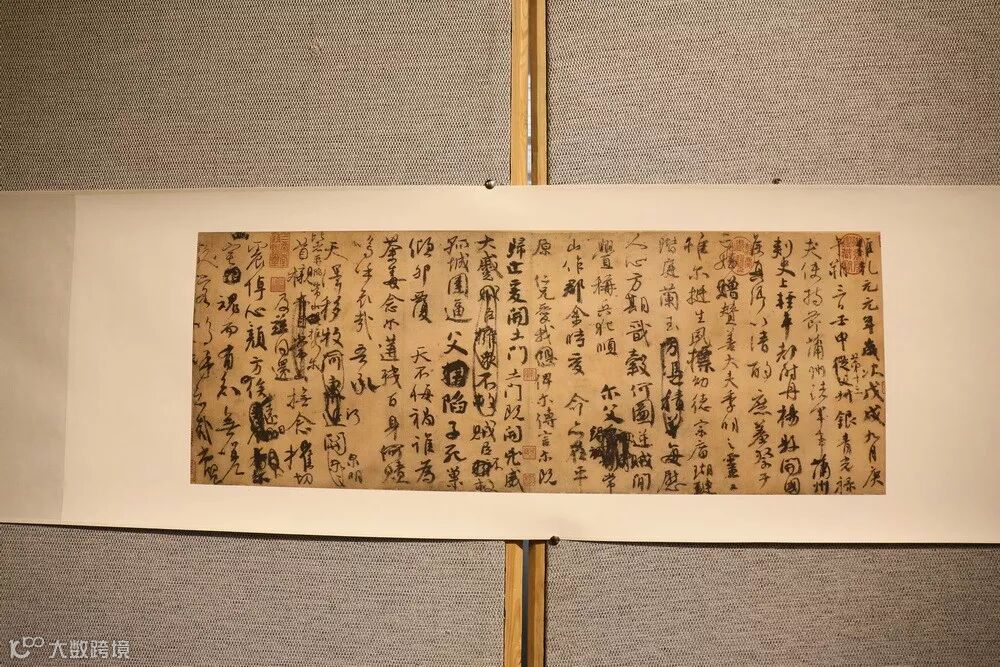 維乾元元年歲次戊戌九月庚
午朔三日壬申第十三叔銀青光祿
夫使持節蒲州諸軍事蒲州
刺史上輕車都尉丹楊縣開國
侯真卿以清酌庶羞祭于
亡姪贈贊善大夫季明之靈曰
惟爾挺生夙標幼德宗廟瑚璉
階庭蘭玉每慰
人心方期戩穀何圖逆賊閒
釁稱兵犯順爾父竭誠常
山作郡余時受命亦在平
原仁兄愛我俾爾傳言爾既
歸止爰開土門土門既開凶威
大蹙賊臣不救
孤城圍逼父陷子死巢
傾卵覆天不悔禍誰為
荼毒念爾遘殘百身何贖
嗚乎哀哉吾承
天澤移牧河關泉明
比者再陷常山攜爾
首櫬及茲同還撫念摧切
震悼心顏方俟遠日
大数跨境